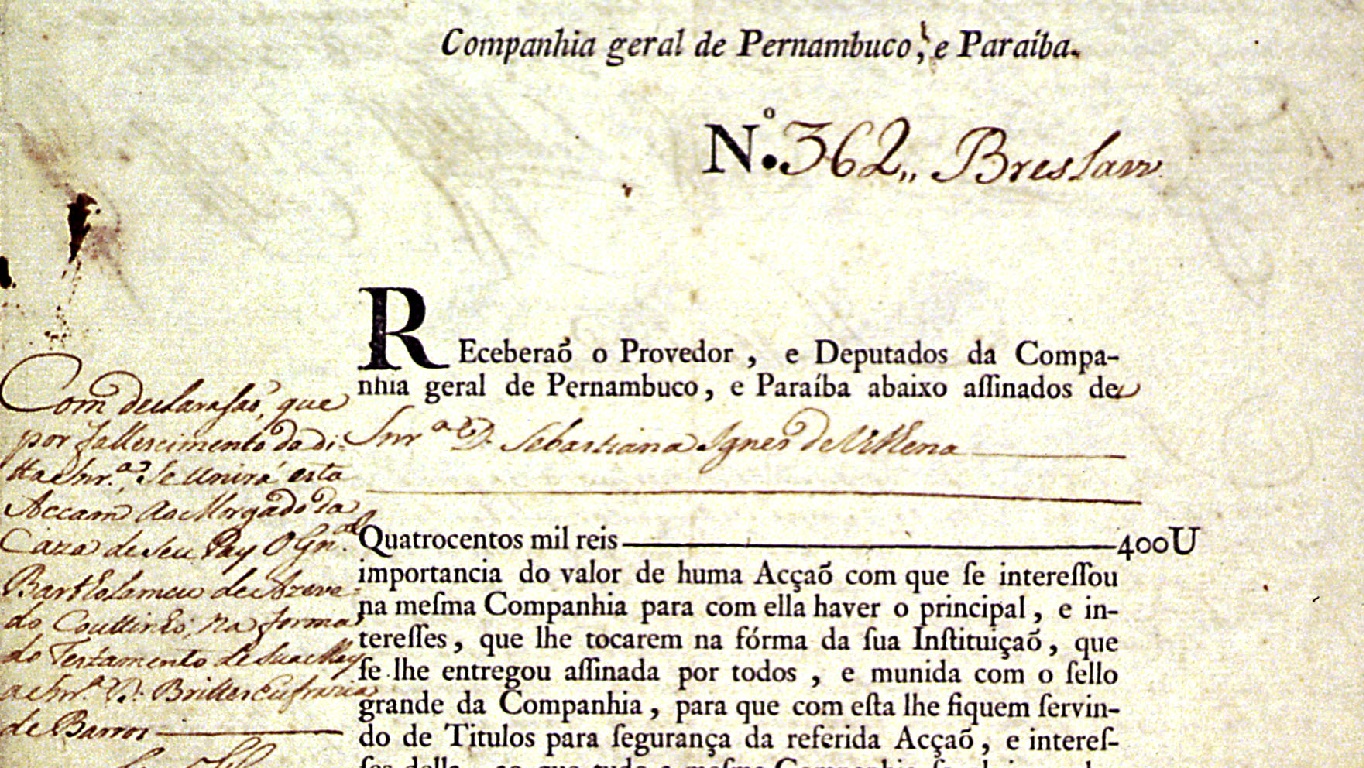 Companhia geral de Pernambuco, e Paraíba.
N.º 362,, Breslaw
REceberaõ o Provedor , e Deputados da Compa-
nhia geral de Pernambuco, e Paraíba abaixo aſſinados de
Snr.ª D. Sebastiana Ignes de Vilhena
Quatrocentos mil reis 400U
importancia do valor de huma Acçaõ com que ſe intereſſou
na meſma Companhia para com ella haver o principal, e in-
tereſſes, que lhe tocarem na fórma da ſua Inſtituiçaõ, que
ſe lhe entregou aſſinada por todos , e munida com o ſello
grande da Companhia, para que com eſta lhe fiquem ſervin-
do de Titulos para ſegurança da referida Acçaõ, e intereſ-
Com declarasaõ, que
por fallescimento da di-
tta Snr.ª, se unirá esta
Accam ao Morgado da
Caza de seu Pay O Gn.ᵃˡ
Bartholameu de Azeve-
do Couttinho, na forma
do Testamento de sua May
a Snr.ª D. Brittes Eufrazia
de Barros